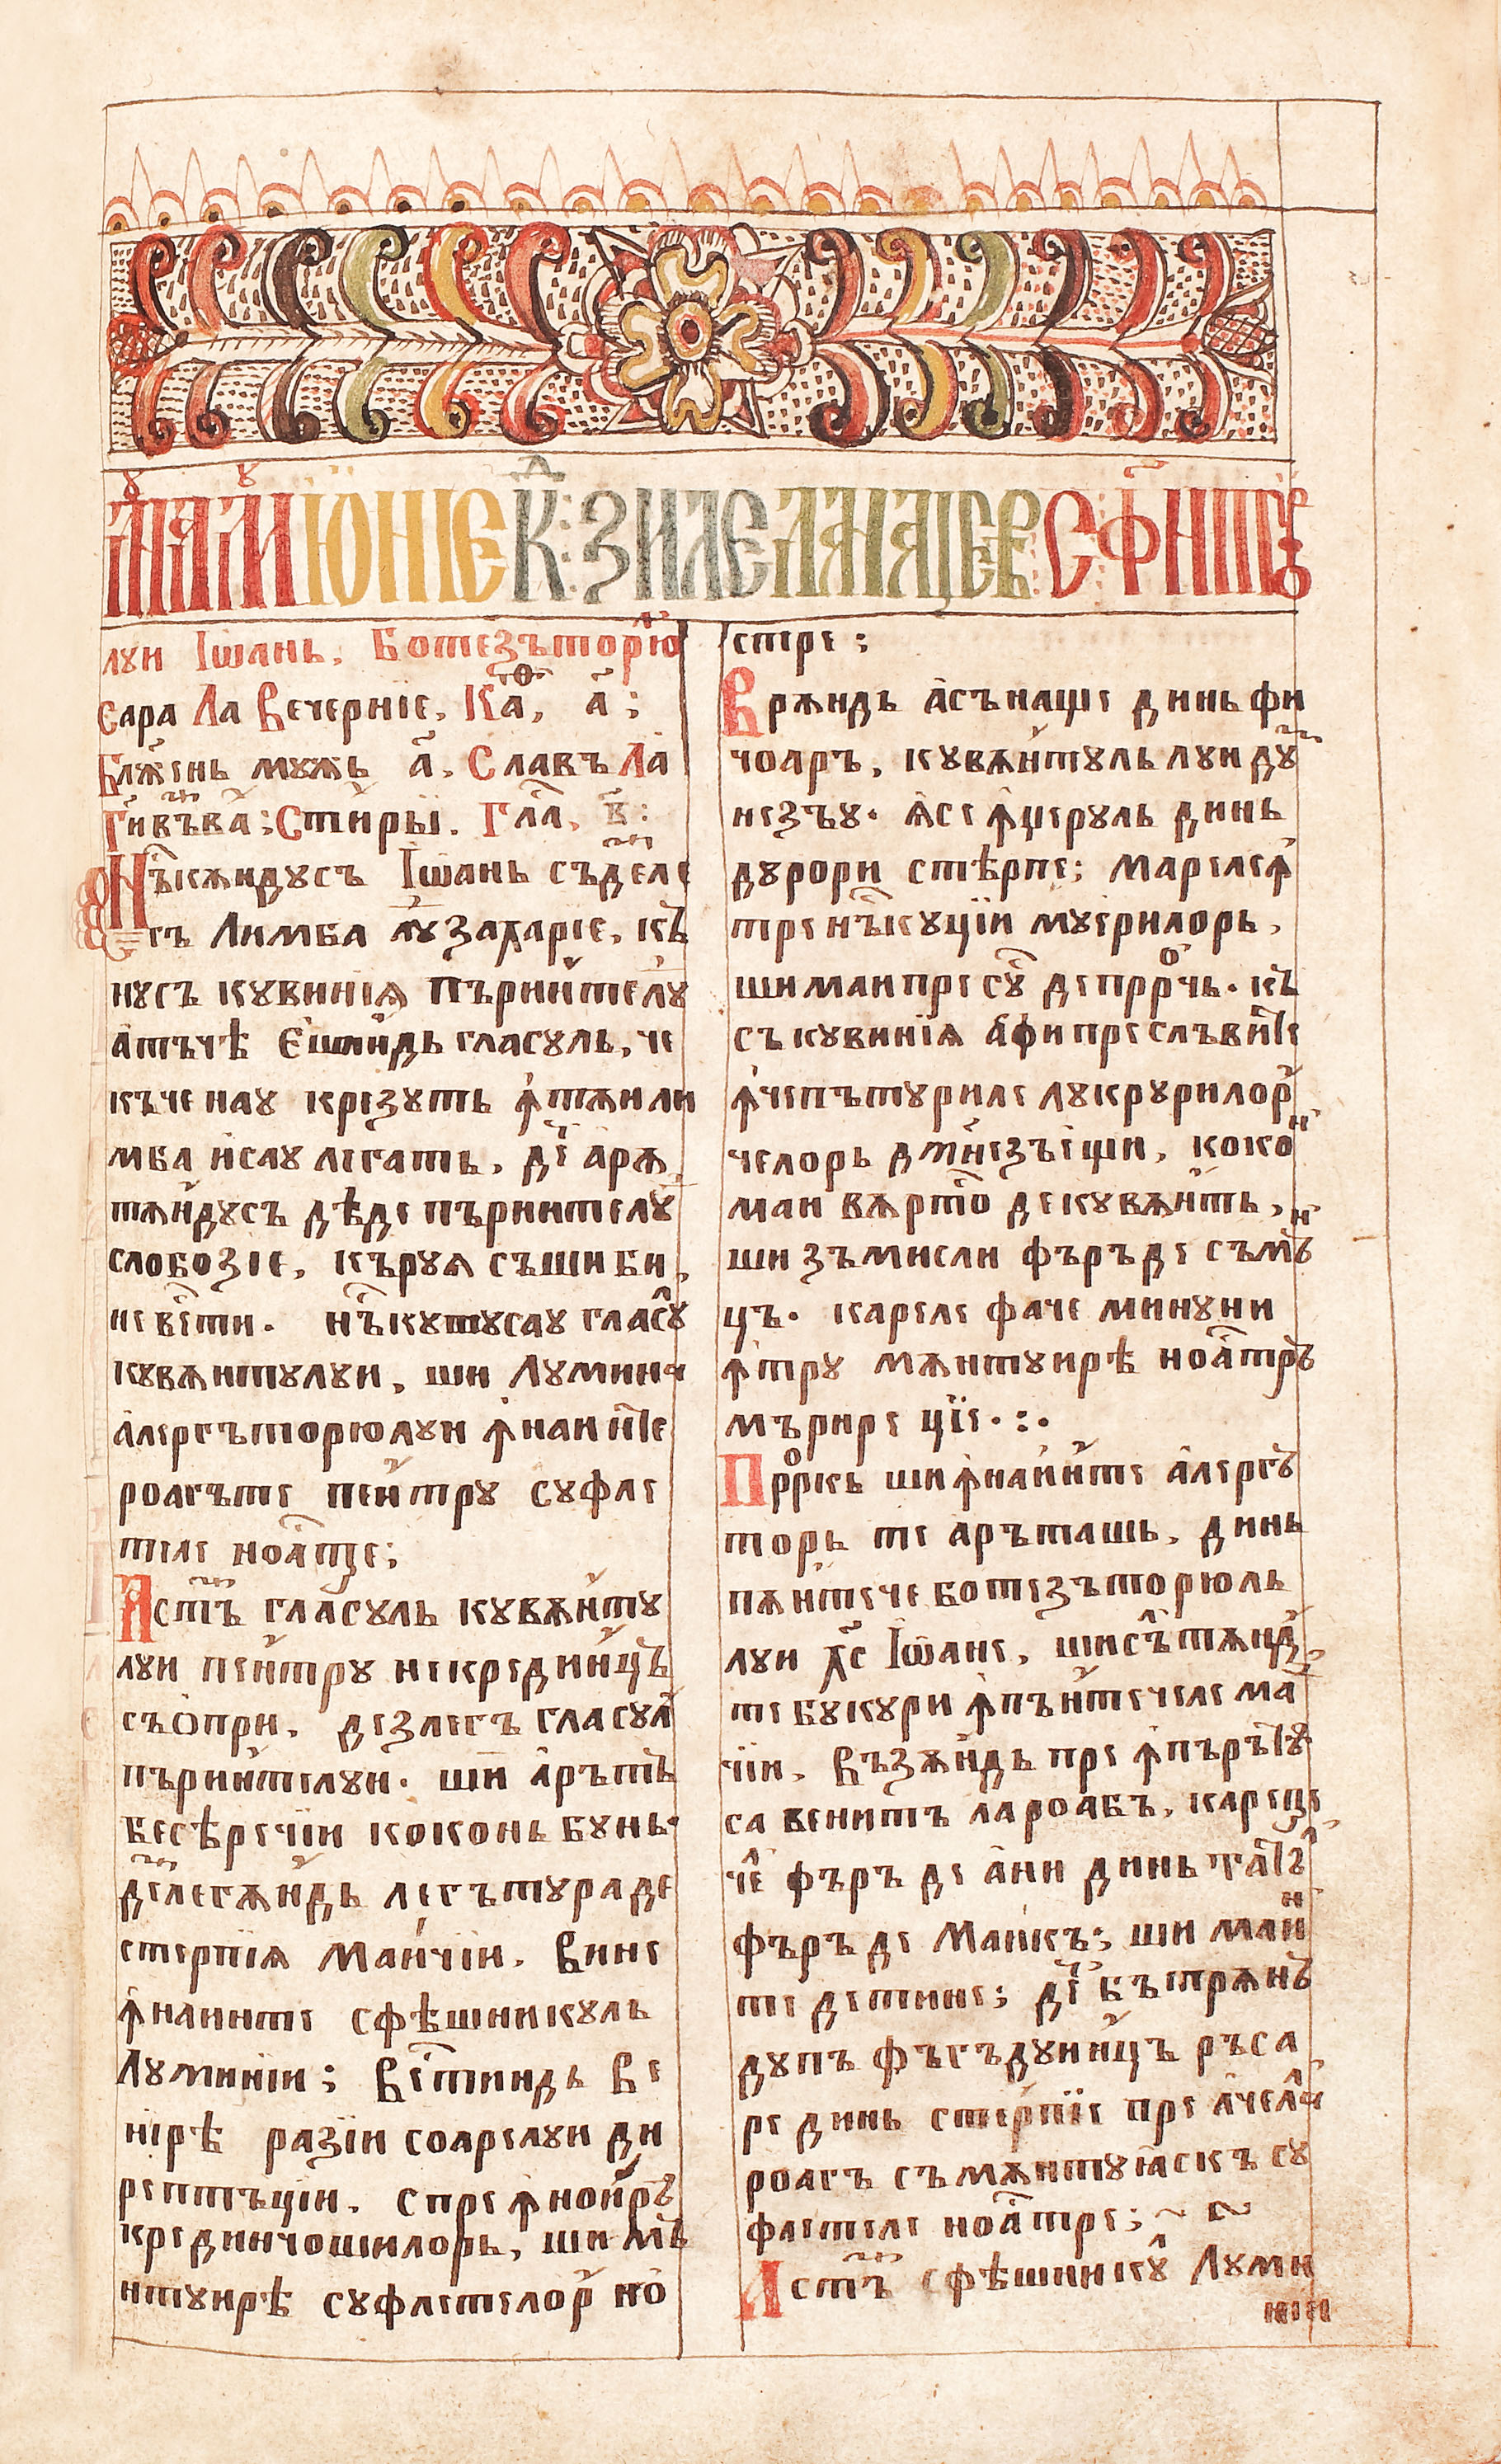 лꙋи Іѡань. Ботезъторю
сара Ла Вечерніе. Ка҃. а҃;
Блж҃ень мꙋжь а҃. Славъ Ла
Нъскѫндꙋсъ Іѡань съделе
гъ Лимба лꙋ Захаріе. къ
нꙋсъ кꙋвиніѧ Пъринтелꙋ
атъчѣ Єшиндь гласꙋль, че
къче наꙋ крезꙋть ꙟтѫи ли
мба исаꙋ легать. де арѫ
тѫндꙋсъ дѣде пъринтелꙋ
слобозіе. кърꙋѧ съши би,
не вести. Нъскꙋтꙋсаꙋ гласꙋ
кꙋвѫнтꙋлꙋи, ши Лꙋминій
алергъторюлꙋи ꙟнаинте
роагъте пентрꙋ сꙋфле
теле ноастре;
Астъ гласꙋль кꙋвѫнтꙋ
лꙋи пентрꙋ некрединцъ
съопри. дезлегъ гласꙋл
пъринтелꙋи. ши аръть
бесѣречіи коконь бꙋнь.
делегѫндь легътꙋраде
стерпіѧ маичіи. вине
ꙟнаинте сфѣшникꙋль
Лꙋминіи; вестиндь ве
нірѣ разіи соарелꙋи ди
рептъціи. спре ꙟноирѣ
крединчошилорь, ши мъ
нтꙋирѣ сꙋфлетелор но
стре;
Врѫндь асънаще динь фи
чоаръ. кꙋвѫнтꙋль лꙋи дꙋ
незъꙋ. ѧсе ꙟцерꙋль динь
дꙋрори стѣрпе; мареле ꙟ
тре нъскꙋціи мꙋерилорь,
ши маи пресꙋ де пррⷪ҇чь. къ
съ кꙋвиніѧ афи преслъвите
ꙟчепътꙋриле лꙋкрꙋрилор
челорь дмнезъещи. коко
маи вѫрто де кꙋвѫнть,
ши зъмисли фъръ де съмѫ
цъ. кареле фаче минꙋни
ꙟтрꙋ мѫнтꙋирѣ ноастръ
мърире ціе.
Пррⷪ҇кь ши ꙟнаинте алергъ
торь те аръташь. динь
пѫнтече ботезъторюль
лꙋи Хс Іѡане, ши сълтѫнд
те бꙋкꙋри ꙟ пънтечеле ма
чіи. Възѫндь пре ꙟпъратꙋ
са венить ла роабъ. кареце
че фъръ де ани динь татъ
фъръ де Маикъ; ши маи
те детине; де въ спрѫнъ
дꙋпъ фъгъдꙋинцъ ръса
ре динь стерпіе пре ачела
роагъ съмѫнтꙋиаскъ сꙋ
флетеле ноастре;
Астъ сфѣшникꙋ Лꙋми
ніи